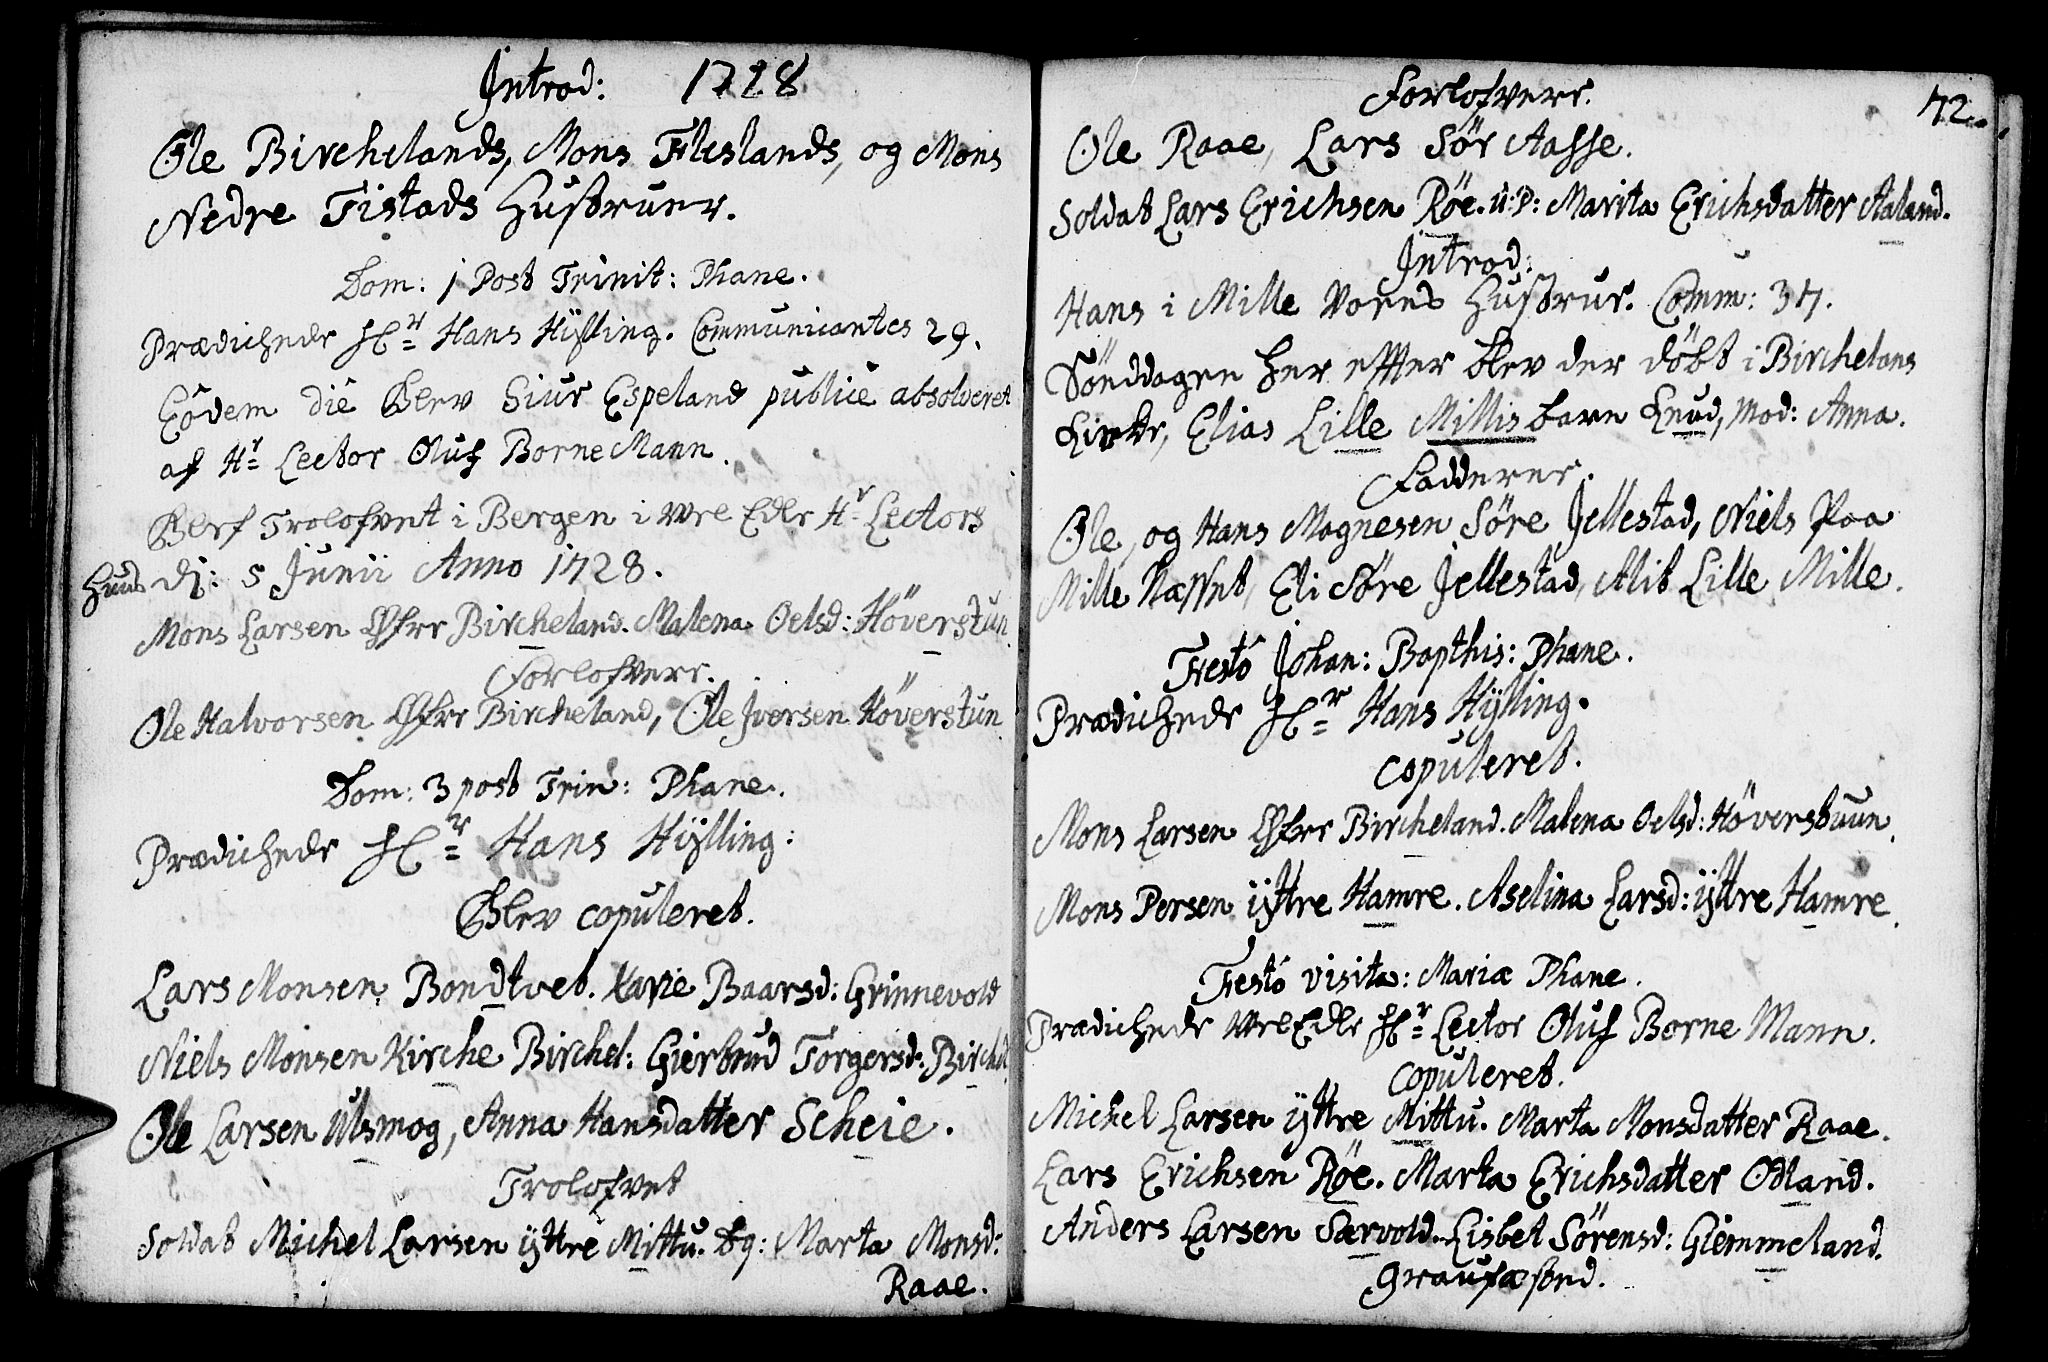 Introd: 1728
Ole Birchelands, Mons Fleslands, og Mons
Nedre Tistads Hustruer.
Dom: 1 Post Trinit: Phane.
Prædichede Hr Hans Hÿlling. Communicantes 29.
Eodem die Blev Siur Espeland publice absolveret
af Hr Lector Oluf Borne Mann.
Blef Trolofvet i Bergen i Vel Edle Hr Lectors
Huus di: 5 Junii Anno 1728.
Mons Larsen Øfre Bircheland. Malena Oelsd: Høverstun
Forlofvere.
Ole Halvorsen Øfre Bircheland, Ole Iversen Høverstun
Dom: 3 post Trin: Phane.
Prædichede Hr Hans Hÿlling:
Blev copuleret.
Lars Monsen Bondtvet. Karie Baarsd: Grinnevold
Niels Monsen Kirche Birchel: Giertrud Torgersd: Birchel
Ole Larsen Ulsmog, Anna Hansdatter Scheie.
Trolofvet
Soldat Michel Larsen ÿttre Mittu. og: Marta Monsd:
Raae.
72.
Forlofvere.
Ole Raae, Lars Sør Aasse.
Soldat Lars Erichsen Røe. u: P: Marita Erichsdatter Aaland.
Introd:
Hans i Mille Vorns Hustrue. Comm: 37.
Sønddagen her effter blev der døbt i Birchelans
Kirke, Elias Lille Millis barn Knud, Mod: Anna.
Fadderer.
Ole, og Hans Magnesen Søre Jellestad, Niels Paa
Mille Næsset, Eli Søre Jellestad, Alit Lille Mille.
Festo Johan: Bapthis: Phane.
Prædichede Hr Hans Hÿlling.
Copuleret.
Mons Larsen Øfre Bircheland. Malena Oelsd: Høverstuun.
Mons Persen ÿttre Hamre. Aselina Larsd: ÿttre Hamre.
Festo visita: Mariæ Phane.
Prædichede Vel Edle Hr Lector Oluf Borne Mann.
Copuleret.
Michel Larsen ÿttre Mittu. Marta Monsdatter Raae.
Lars Erichsen Røe. Marta Erichsdatter Odland.
Anders Larsen Særvold. Lisbet Sørensd: Giemmeland.
Graufæstnd.